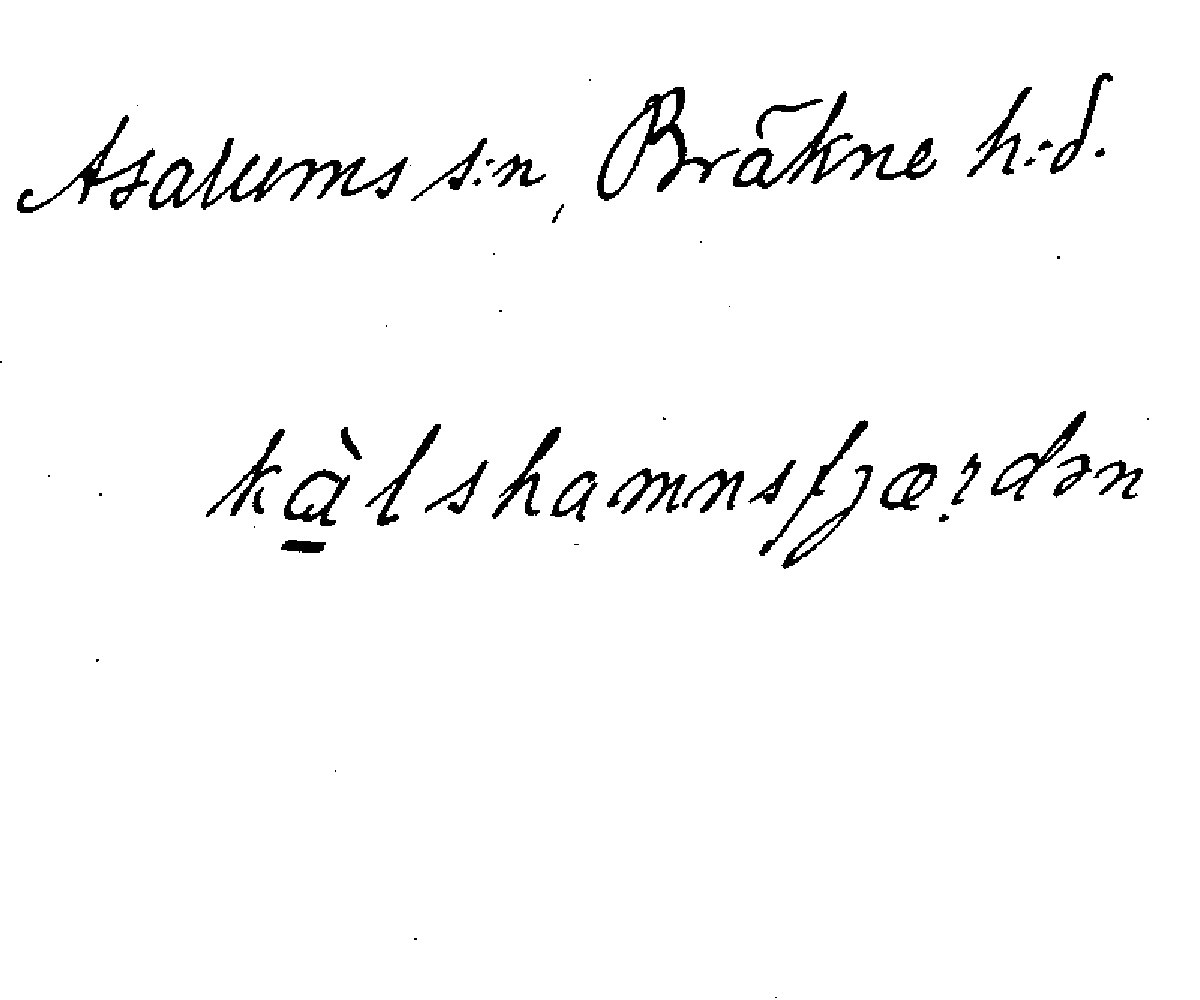 Asarums s:n, Bräkne h:d.
kàlshamnsfjærdən